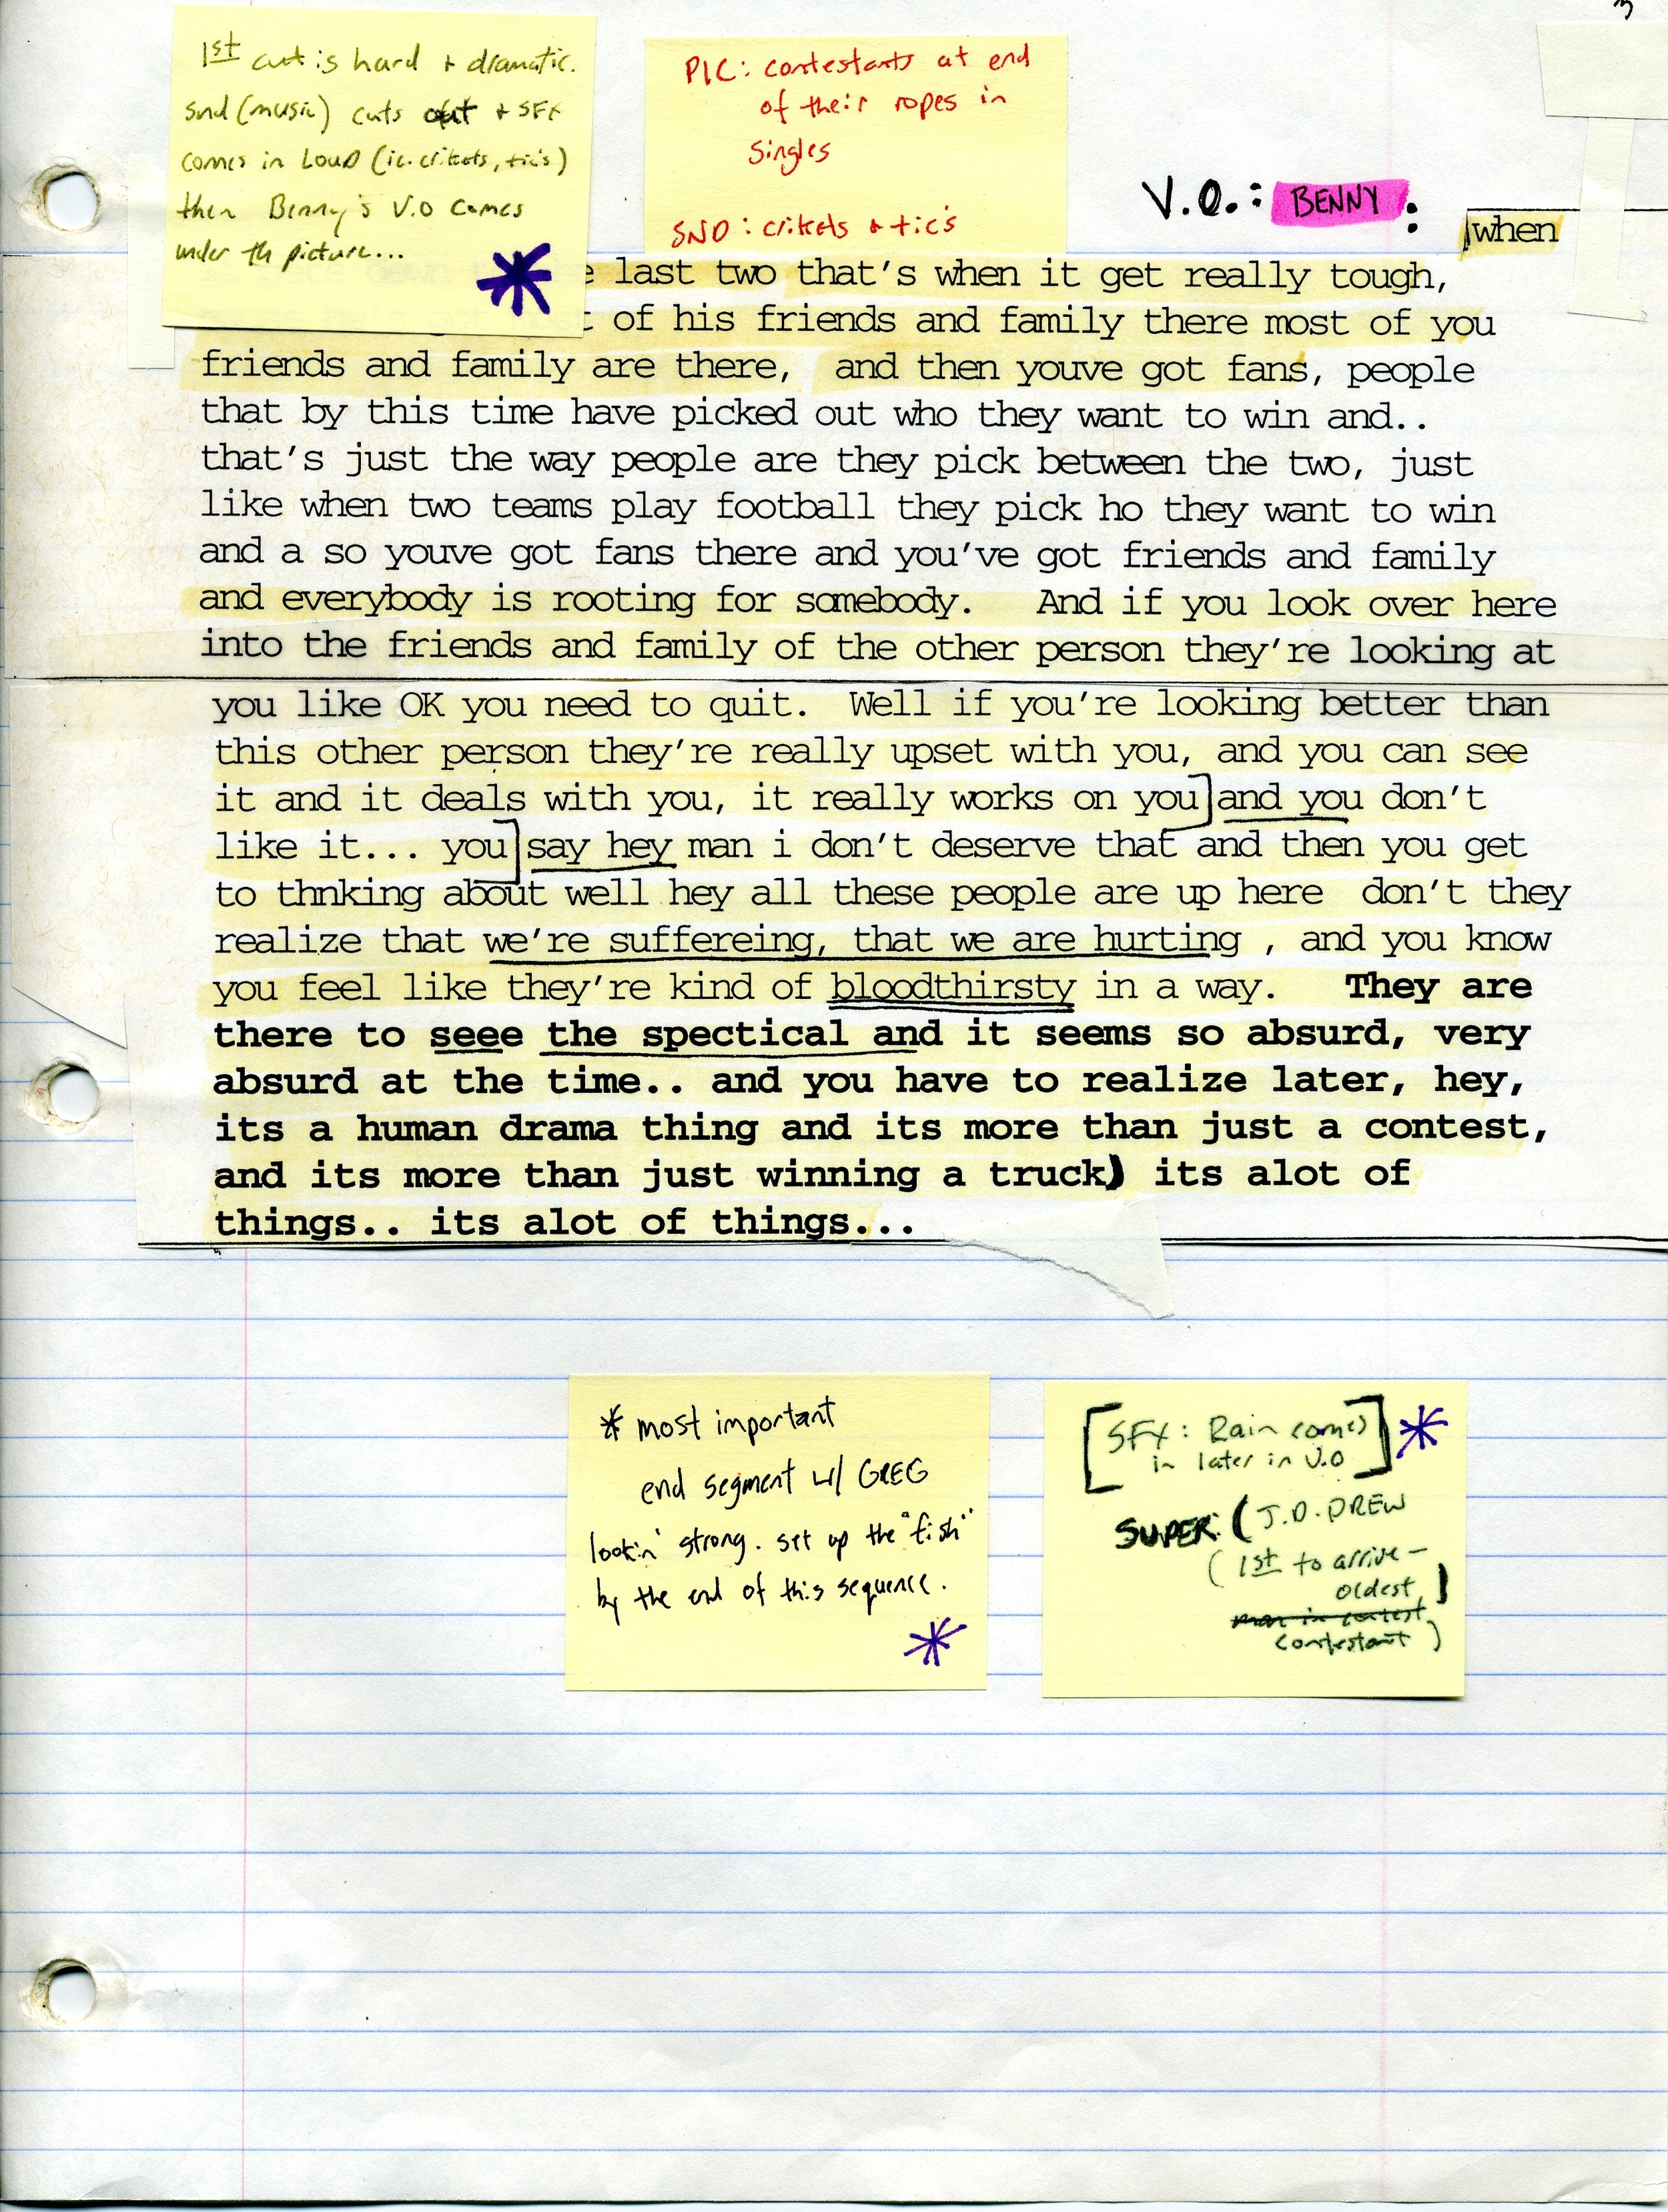 3
1st cut is hard + dramatic.
snd (music) cuts out + SFX
comes in LOUD (ie. crikets, tic's)
then Benny's V.O comes
under th picture...
PIC: contestants at end
of their ropes in
singles
SND: crikets + tic's
V.O.: BENNY:
when
last two that's when it get really tough,
of his friends and family there most of you
friends and family are there, and then youve got fans, people
that by this time have picked out who they want to win and..
that's just the way people are they pick between the two, just
like when two teams play football they pick ho they want to win
and a so youve got fans there and you've got friends and family
and everybody is rooting for somebody. And if you look over here
into the friends and family of the other person they're looking at
you like OK you need to quit. Well if you're looking better than
this other person they're really upset with you, and you can see
it and it deals with you, it really works on you] and you don't
like it... you] say hey man i don't deserve that and then you get
to thnking about well hey all these people are up here don't they
realize that we're suffereing, that we are hurting , and you know
you feel like they're kind of bloodthirsty in a way. They are
there to seee the spectical and it seems so absurd, very
absurd at the time.. and you have to realize later, hey,
its a human drama thing and its more than just a contest,
and its more than just winning a truck) its alot of
things.. its alot of things...
* most important
end segment w/ GREG
lookin' strong. set up the "fish"
by the end of this sequence.
[SFX: Rain comes
in later in V.O]
SUPER: (J.D. DREW
(1st to arrive -
oldest)
man in contest,
contestant)